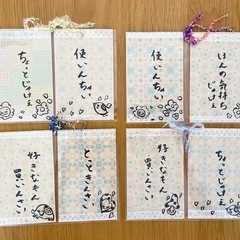 ちょっとじゃけぇ
使いんちゃい
使いんちゃい
ほんの気持ち
じゃけぇ
好きなもん
買いんさい
とっときんさい
好きなもん
買いんさい
ちょっとじゃけぇ